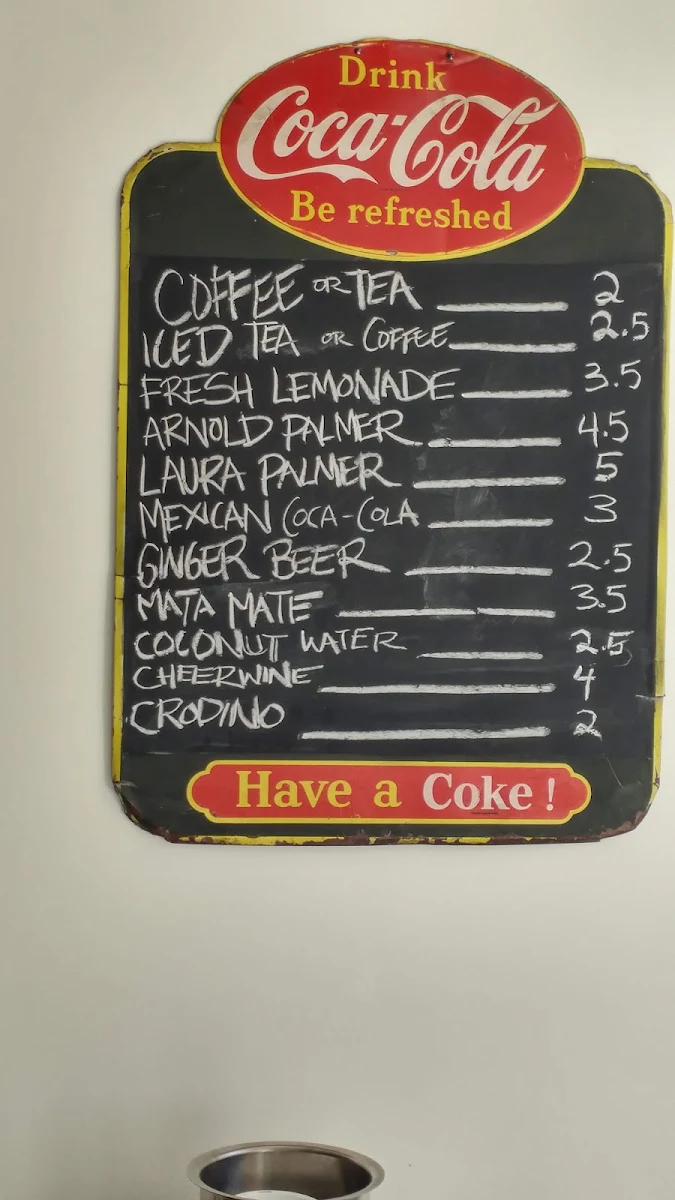 Drink
Coca-Cola
Be refreshed
COFFEE OR TEA 2
ICED TEA OR COFFEE 2.5
FRESH LEMONADE 3.5
ARNOLD PALMER 4.5
LAURA PALMER 5
MEXICAN COCA-COLA 3
GINGER BEER 2.5
MATA MATE 3.5
COCONUT WATER 2.5
CHEERWINE 4
CRODINO 2
Have a Coke!